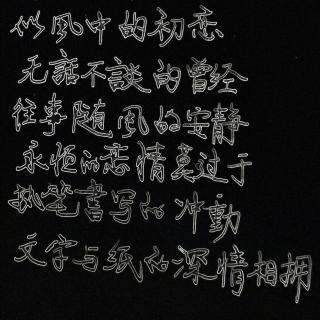 似風中的初恋
无話不談的曾经
往事随風的安静
永恒的恋情莫过于
执笔書写的冲動
文字与纸的深情相拥